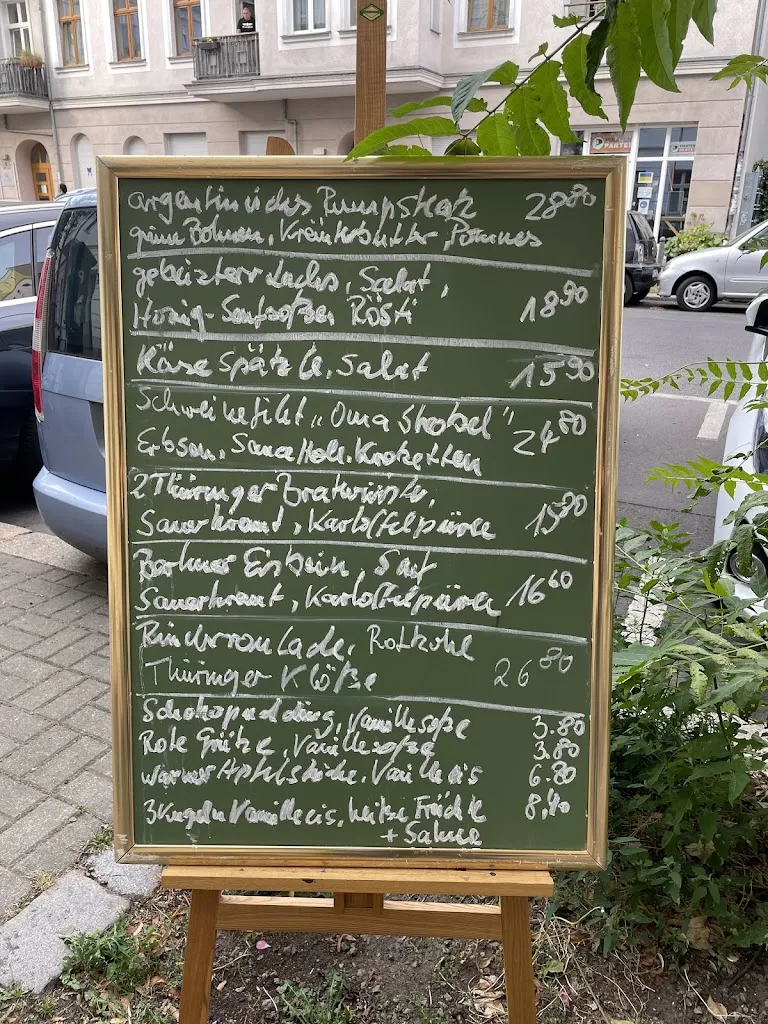 argentinisches Rumpsteak 28.80
grüne Bohnen, Kräuterbutter, Pommes
gebeizter Lachs, Salat,
Honig-Senfsoße, Rösti 18.90
Käse Spätzle, Salat 15.90
Schweinefilet „Oma Strobel"
Erbsen, Sauce Holl. Kroketten 24.80
2 Thüringer Bratwürste,
Sauerkraut, Kartoffelpüree 15.80
Berliner Eisbein, Senf
Sauerkraut, Kartoffelpüree 16.60
Rinderroulade, Rotkohl
Thüringer Klöße 26.80
Schokopudding, Vanillesoße 3.80
Rote Grütze, Vanillesoße 3.80
warmer Apfelstrudel, Vanilleeis 6.80
3 Kugeln Vanilleeis, heiße Früchte 8,40
+ Sahne
PARTEI